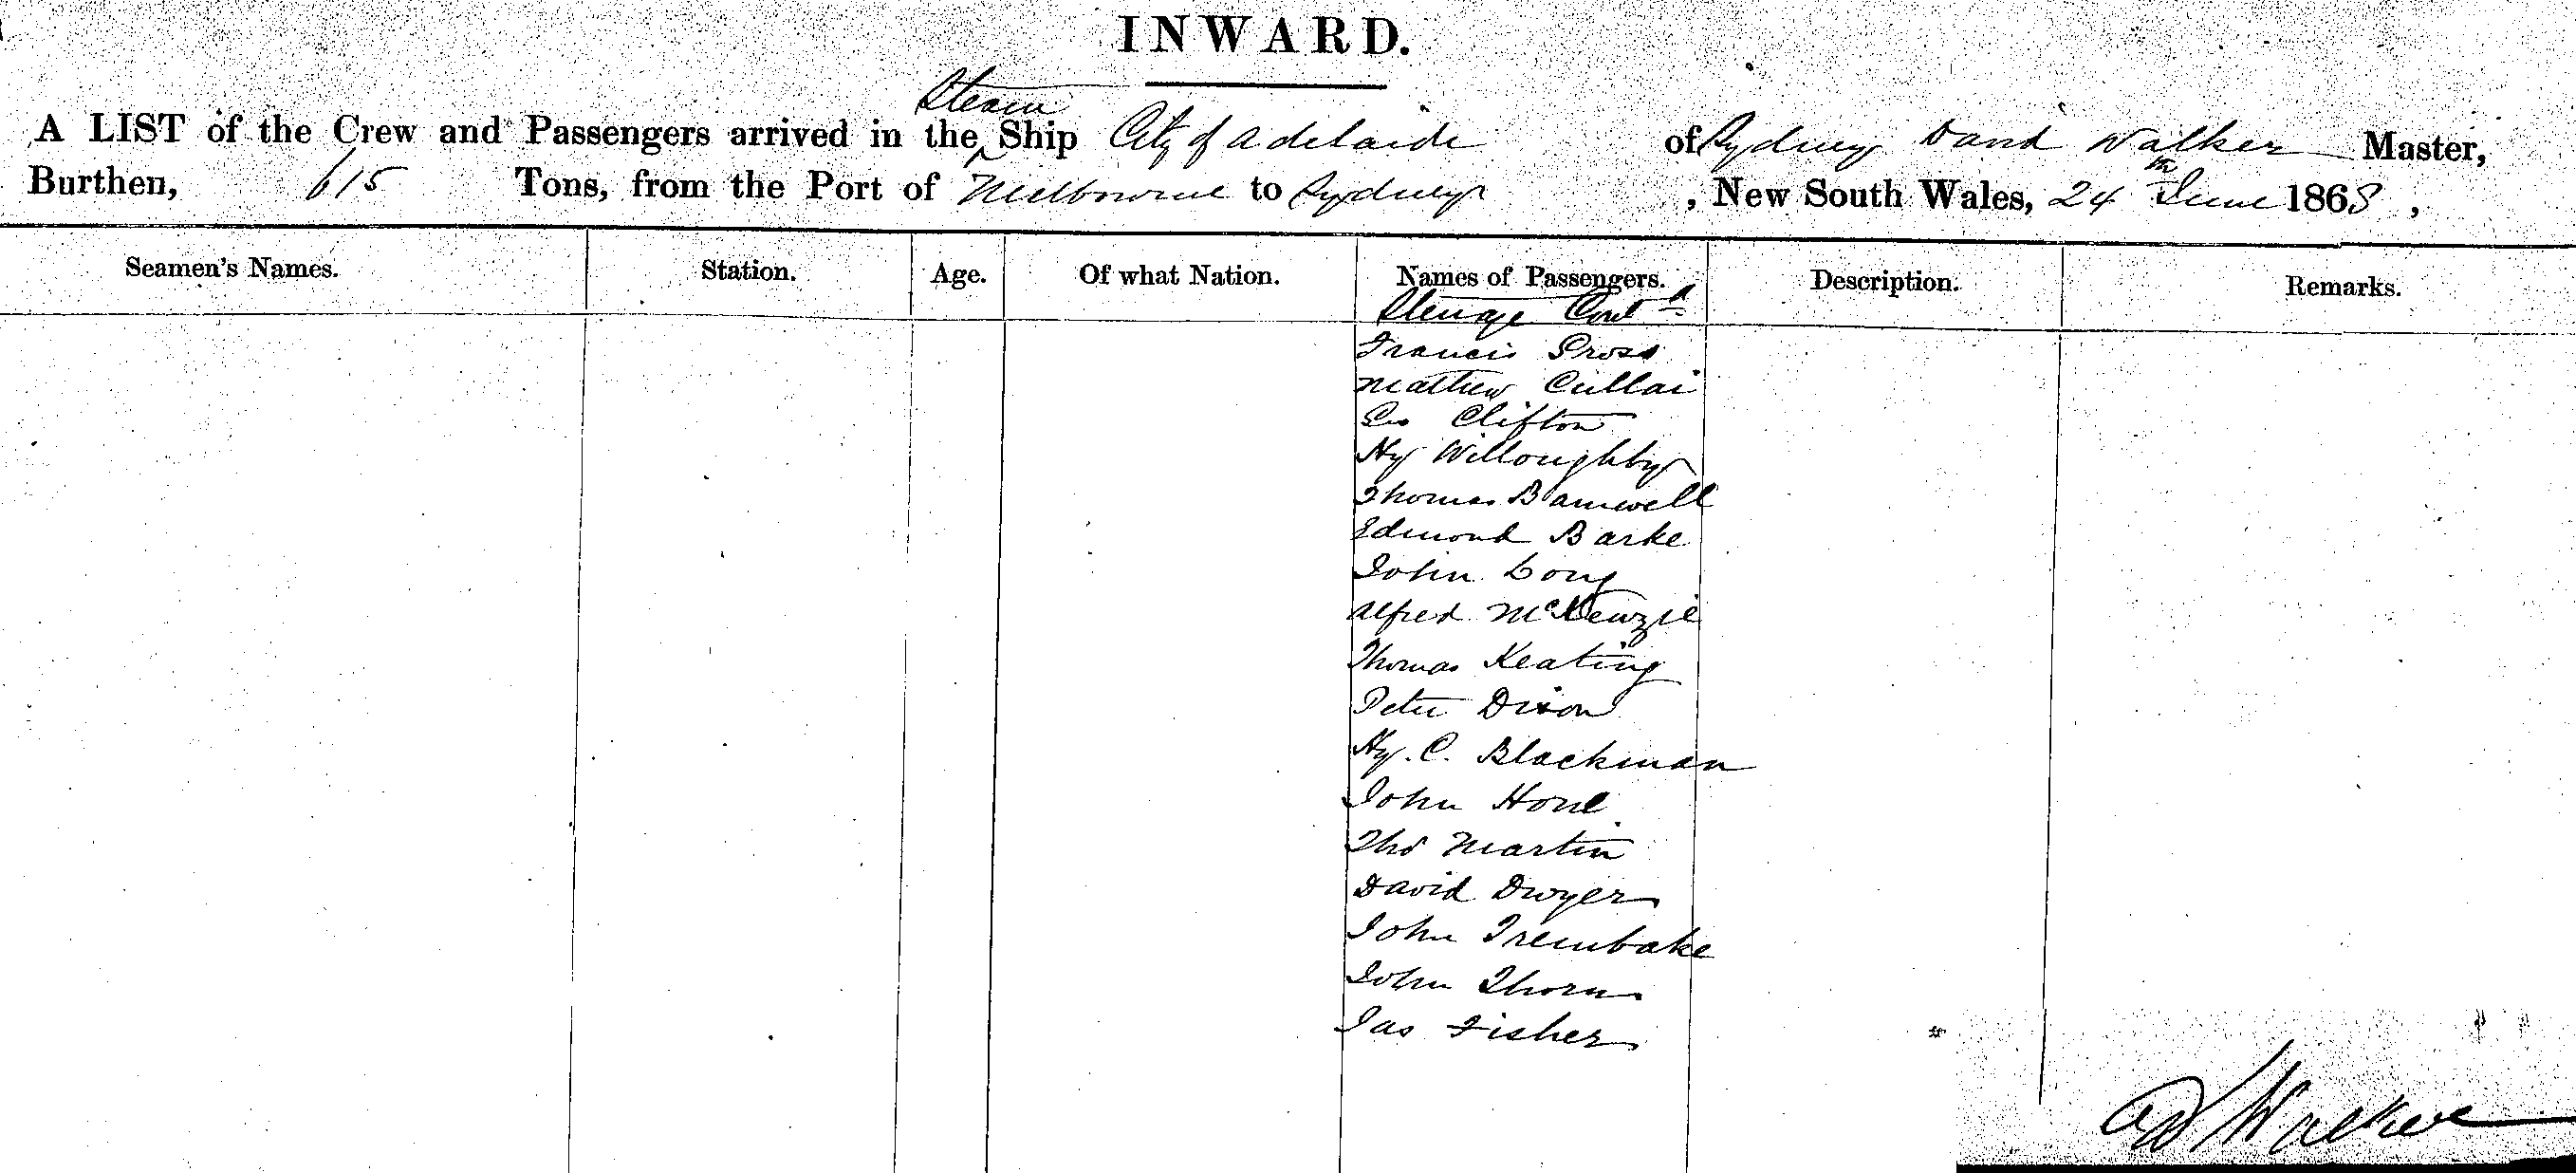 INWARD.
Steam
A LIST of the Crew and Passengers arrived in the Ship City of Adelaide of Sydney David Walker Master,
Burthen, 615 Tons, from the Port of Melbourne to Sydney , New South Wales, 24th June 1868 ,
Seamen's Names. Station. Age. Of what Nation. Names of Passengers. Description. Remarks.
Steerage Contd
Francis Pross
Matthew Cullai
Geo Clifton
Hy Willoughby
Thomas Bamwell
Edmond Barke
John Long
Alfred McKenzie
Thomas Keating
Peter Dixon
Hy. C. Blackman
John Hone
Thos Martin
David Dwyer
John Trembake
John Thorn
Jas Fisher
D Walker